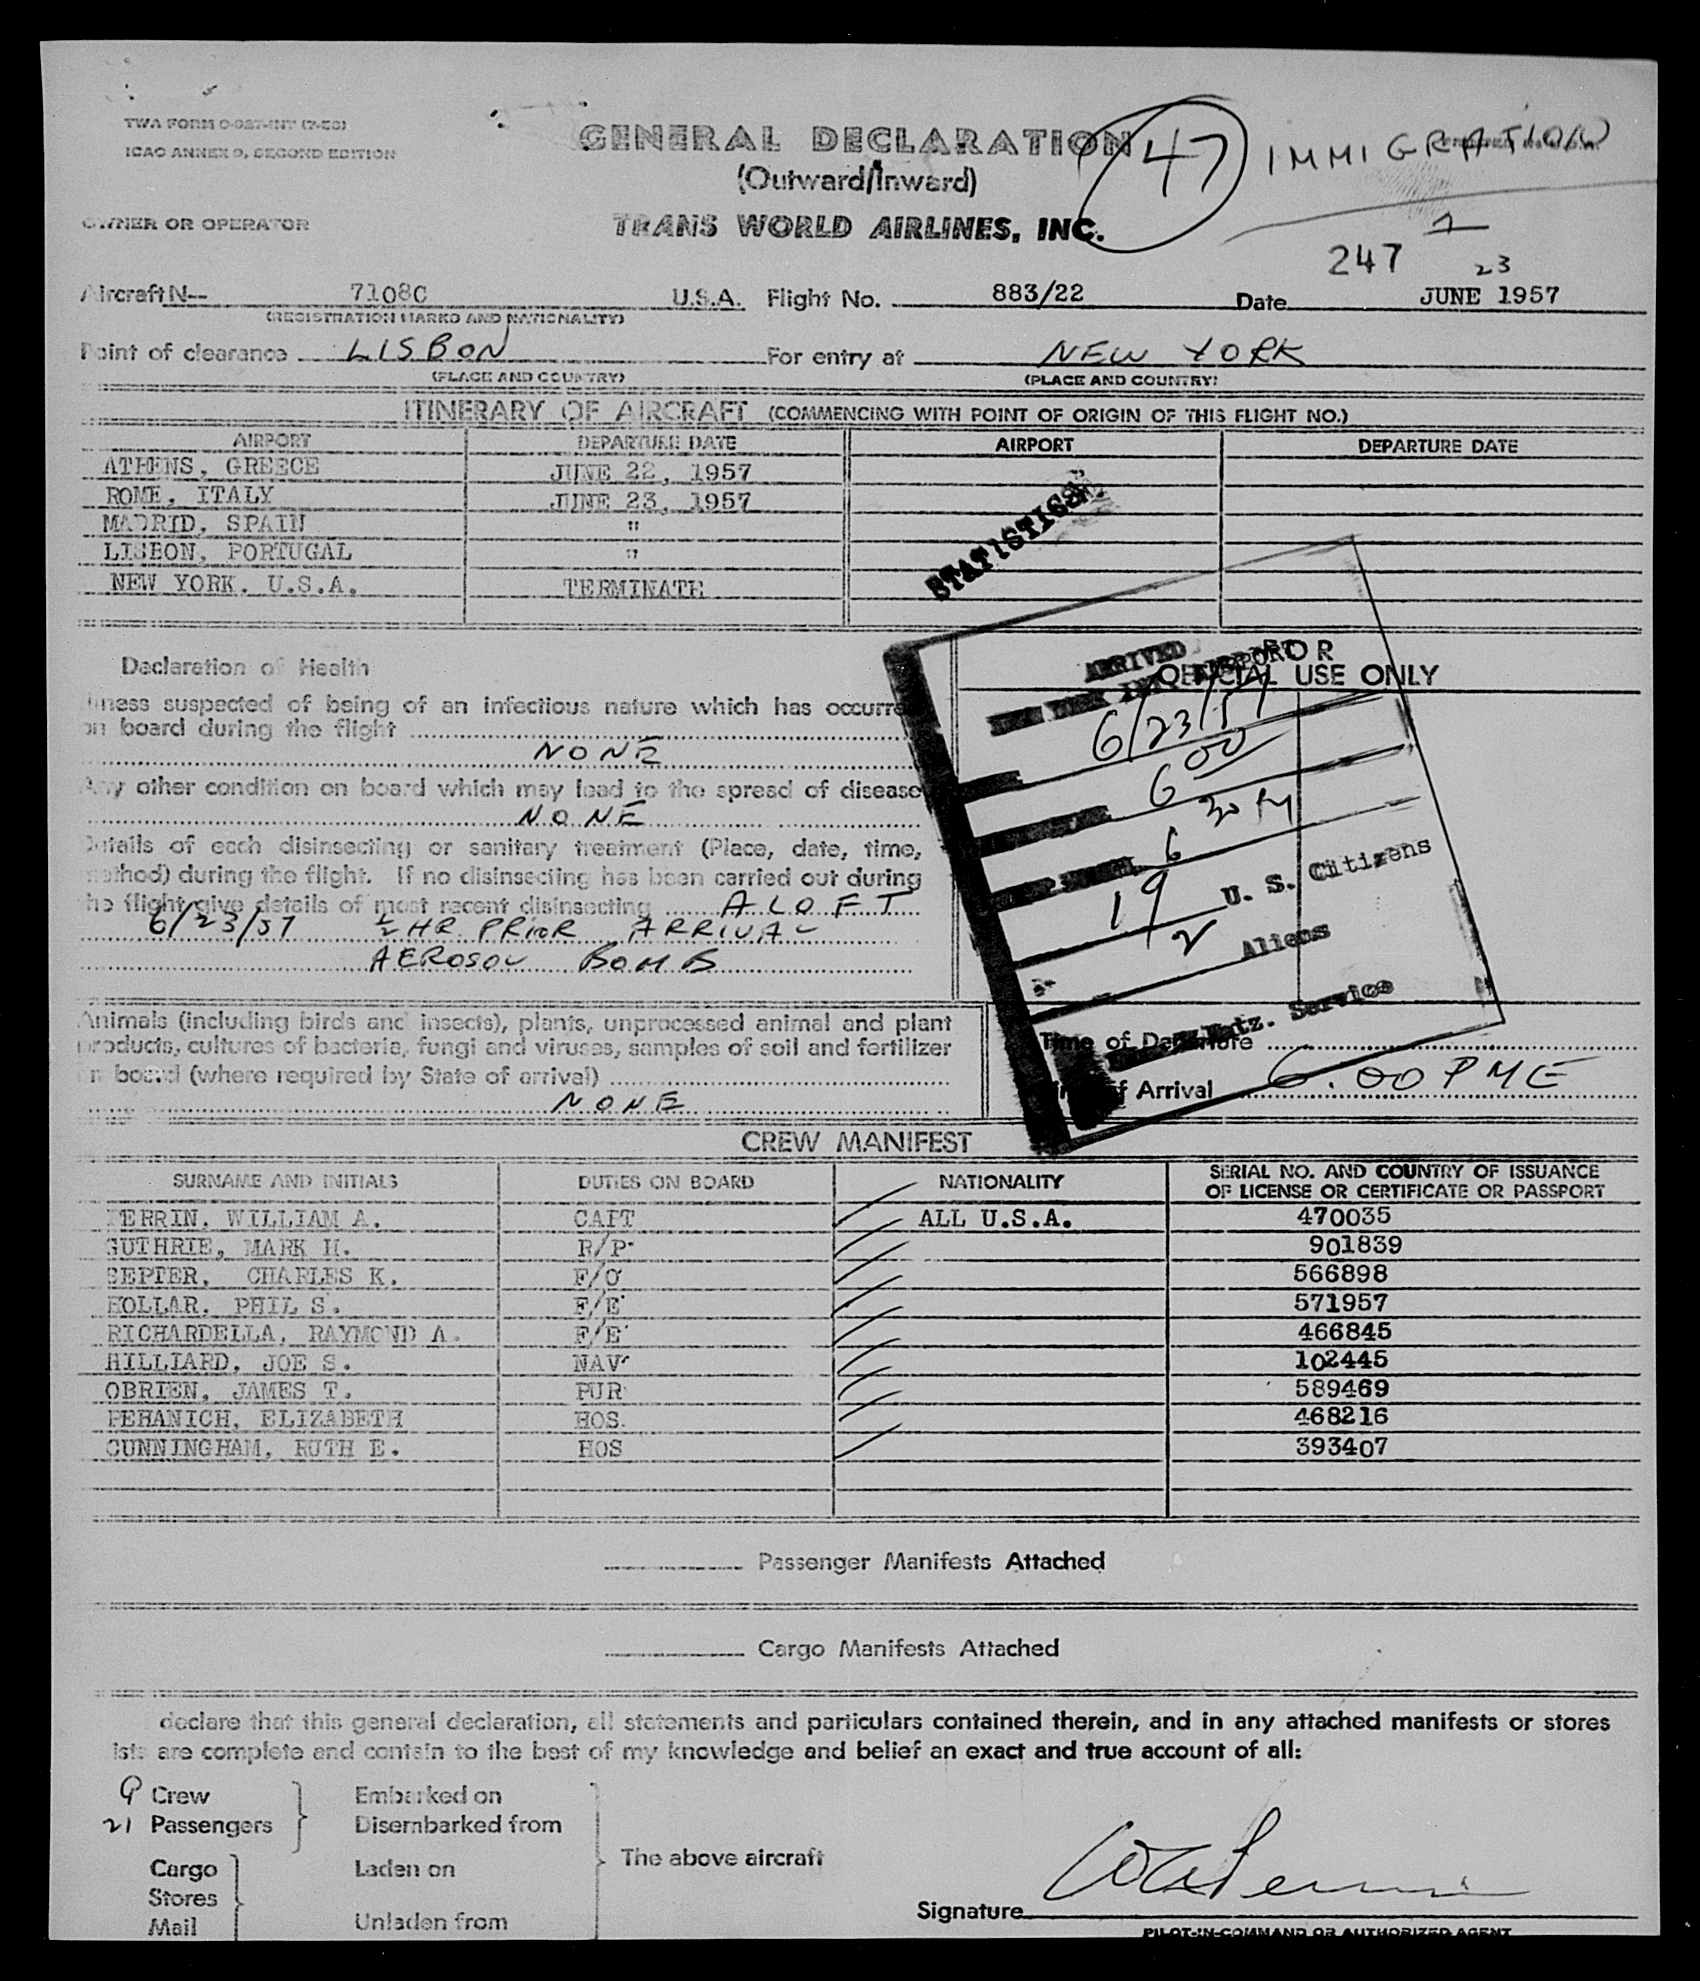 TWA FORM O-027-INT (7-53)
ICAO ANNEX 9, SECOND EDITION
GENERAL DECLARATION
(Outward/Inward)
47 IMMIGRATION
OWNER OR OPERATOR
TRANS WORLD AIRLINES, INC.
247
Aircraft N-- 7108C U.S.A. Flight No. 883/22 Date 23 JUNE 1957
(REGISTRATION MARKS AND NATIONALITY)
Point of clearance LISBON For entry at NEW YORK
(PLACE AND COUNTRY) (PLACE AND COUNTRY)
ITINERARY OF AIRCRAFT (COMMENCING WITH POINT OF ORIGIN OF THIS FLIGHT NO.)
AIRPORT DEPARTURE DATE AIRPORT DEPARTURE DATE
ATHENS, GREECE JUNE 22, 1957
ROME, ITALY JUNE 23, 1957
MADRID, SPAIN "
LISBON, PORTUGAL "
NEW YORK, U.S.A. TERMINATE
STATISTICS
Declaration of Health
Illness suspected of being of an infectious nature which has occurred
on board during the flight
NONE
Any other condition on board which may lead to the spread of disease
NONE
Details of each disinsecting or sanitary treatment (Place, date, time,
method) during the flight. If no disinsecting has been carried out during
the flight give details of most recent disinsecting ALOFT
6/23/57 ½ HR PRIOR ARRIVAL
AEROSOL BOMB
FOR
OFFICIAL USE ONLY
ARRIVED
6/23/57
6 00
6 30 PM
6
19 U. S. Citizens
2 Aliens
Natz. Service
Animals (including birds and insects), plants, unprocessed animal and plant
products, cultures of bacteria, fungi and viruses, samples of soil and fertilizer
on board (where required by State of arrival)
NONE
Time of Departure
Time of Arrival 6.00 PME
CREW MANIFEST
SURNAME AND INITIALS DUTIES ON BOARD NATIONALITY SERIAL NO. AND COUNTRY OF ISSUANCE
OF LICENSE OR CERTIFICATE OR PASSPORT
PERRIN, WILLIAM A. CAPT ALL U.S.A. 470035
GUTHRIE, MARK H. R/P 901839
SEPTER, CHARLES K. F/O 566898
HOLLAR, PHIL S. F/E 571957
RICHARDELLA, RAYMOND A. F/E 466845
HILLIARD, JOE S. NAV 102445
OBRIEN, JAMES T. PUR 589469
PEHANICH, ELIZABETH HOS. 468216
CUNNINGHAM, RUTH E. HOS 393407
Passenger Manifests Attached
Cargo Manifests Attached
declare that this general declaration, all statements and particulars contained therein, and in any attached manifests or stores
lists are complete and contain to the best of my knowledge and belief an exact and true account of all:
9 Crew Embarked on
21 Passengers Disembarked from
The above aircraft
Cargo Laden on
Stores
Mail Unladen from
Signature WA Perrin
PILOT-IN-COMMAND OR AUTHORIZED AGENT